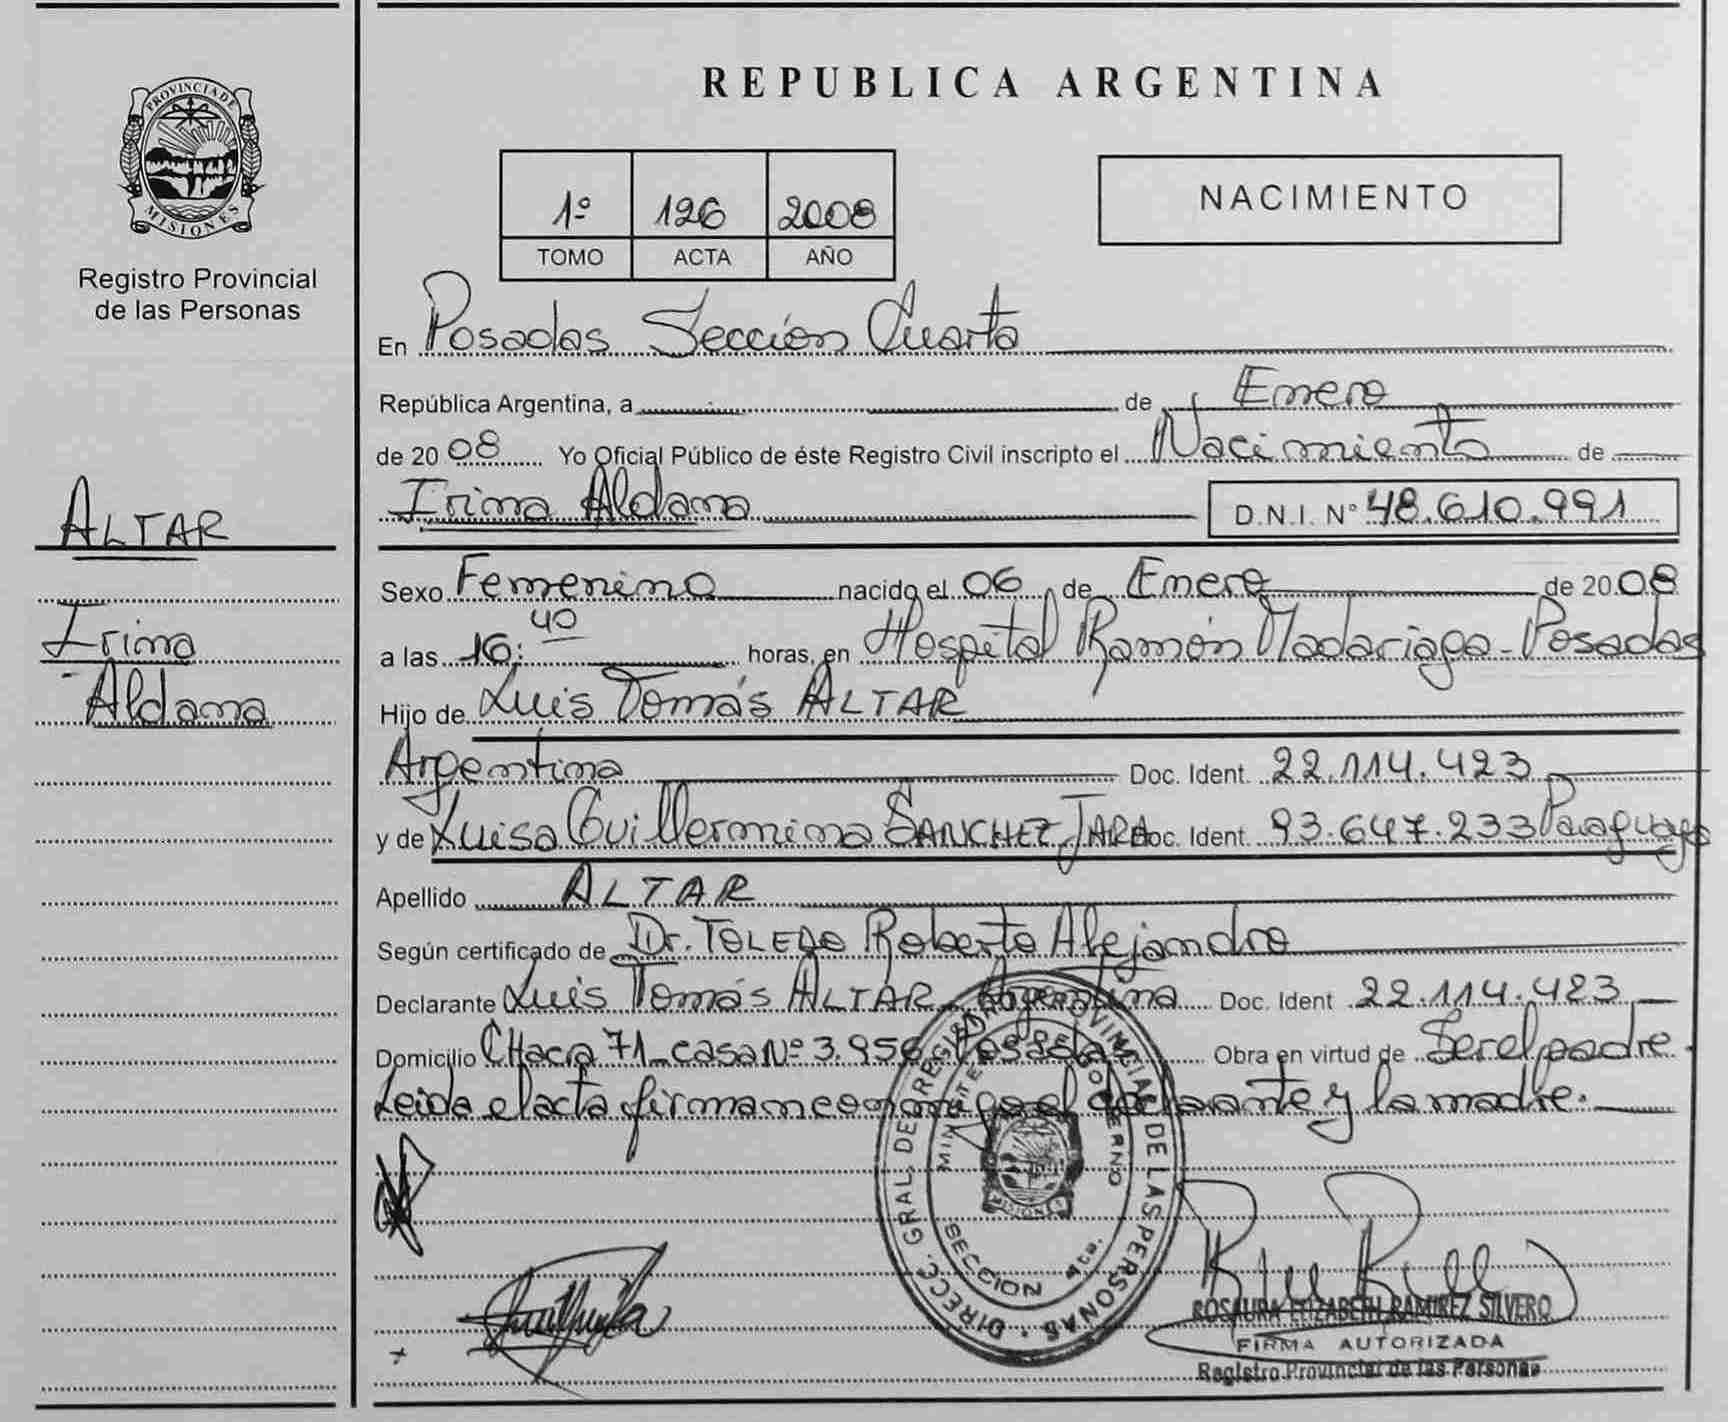 PROVINCIA DE
MISIONES
Registro Provincial
de las Personas
ALTAR
Irina
Aldana
REPUBLICA ARGENTINA
1º 126 2008
TOMO ACTA AÑO
NACIMIENTO
En Posadas Sección Cuarta
República Argentina, a de Enero
de 2008 Yo Oficial Público de éste Registro Civil inscripto el Nacimiento de
Irina Aldana D.N.I. Nº 48.610.991
Sexo Femenino nacido el 06 de Enero de 2008
a las 16:40 horas, en Hospital Ramón Madariaga - Posadas
Hijo de Luis Tomás ALTAR
Argentina Doc. Ident. 22.114.423
y de Luisa Guillermina SANCHEZ JARA Doc. Ident. 93.647.233 Paraguaya
Apellido ALTAR
Según certificado de Dr. TOLEDO Roberto Alejandro
Declarante Luis Tomás ALTAR Argentina Doc. Ident 22.114.423
Domicilio CHacra 71 - casa Nº 3.956 Obra en virtud de Ser el padre.
Leida el acta firman conmigo el declarante y la madre.
DIRECC. GRAL. DE REGISTRO PROVINCIAL DE LAS PERSONAS
MINISTERIO DE GOBIERNO
SECCION 4ta.
ROSAURA ELIZABETH RAMIREZ SILVERO
FIRMA AUTORIZADA
Registro Provincial de las Personas